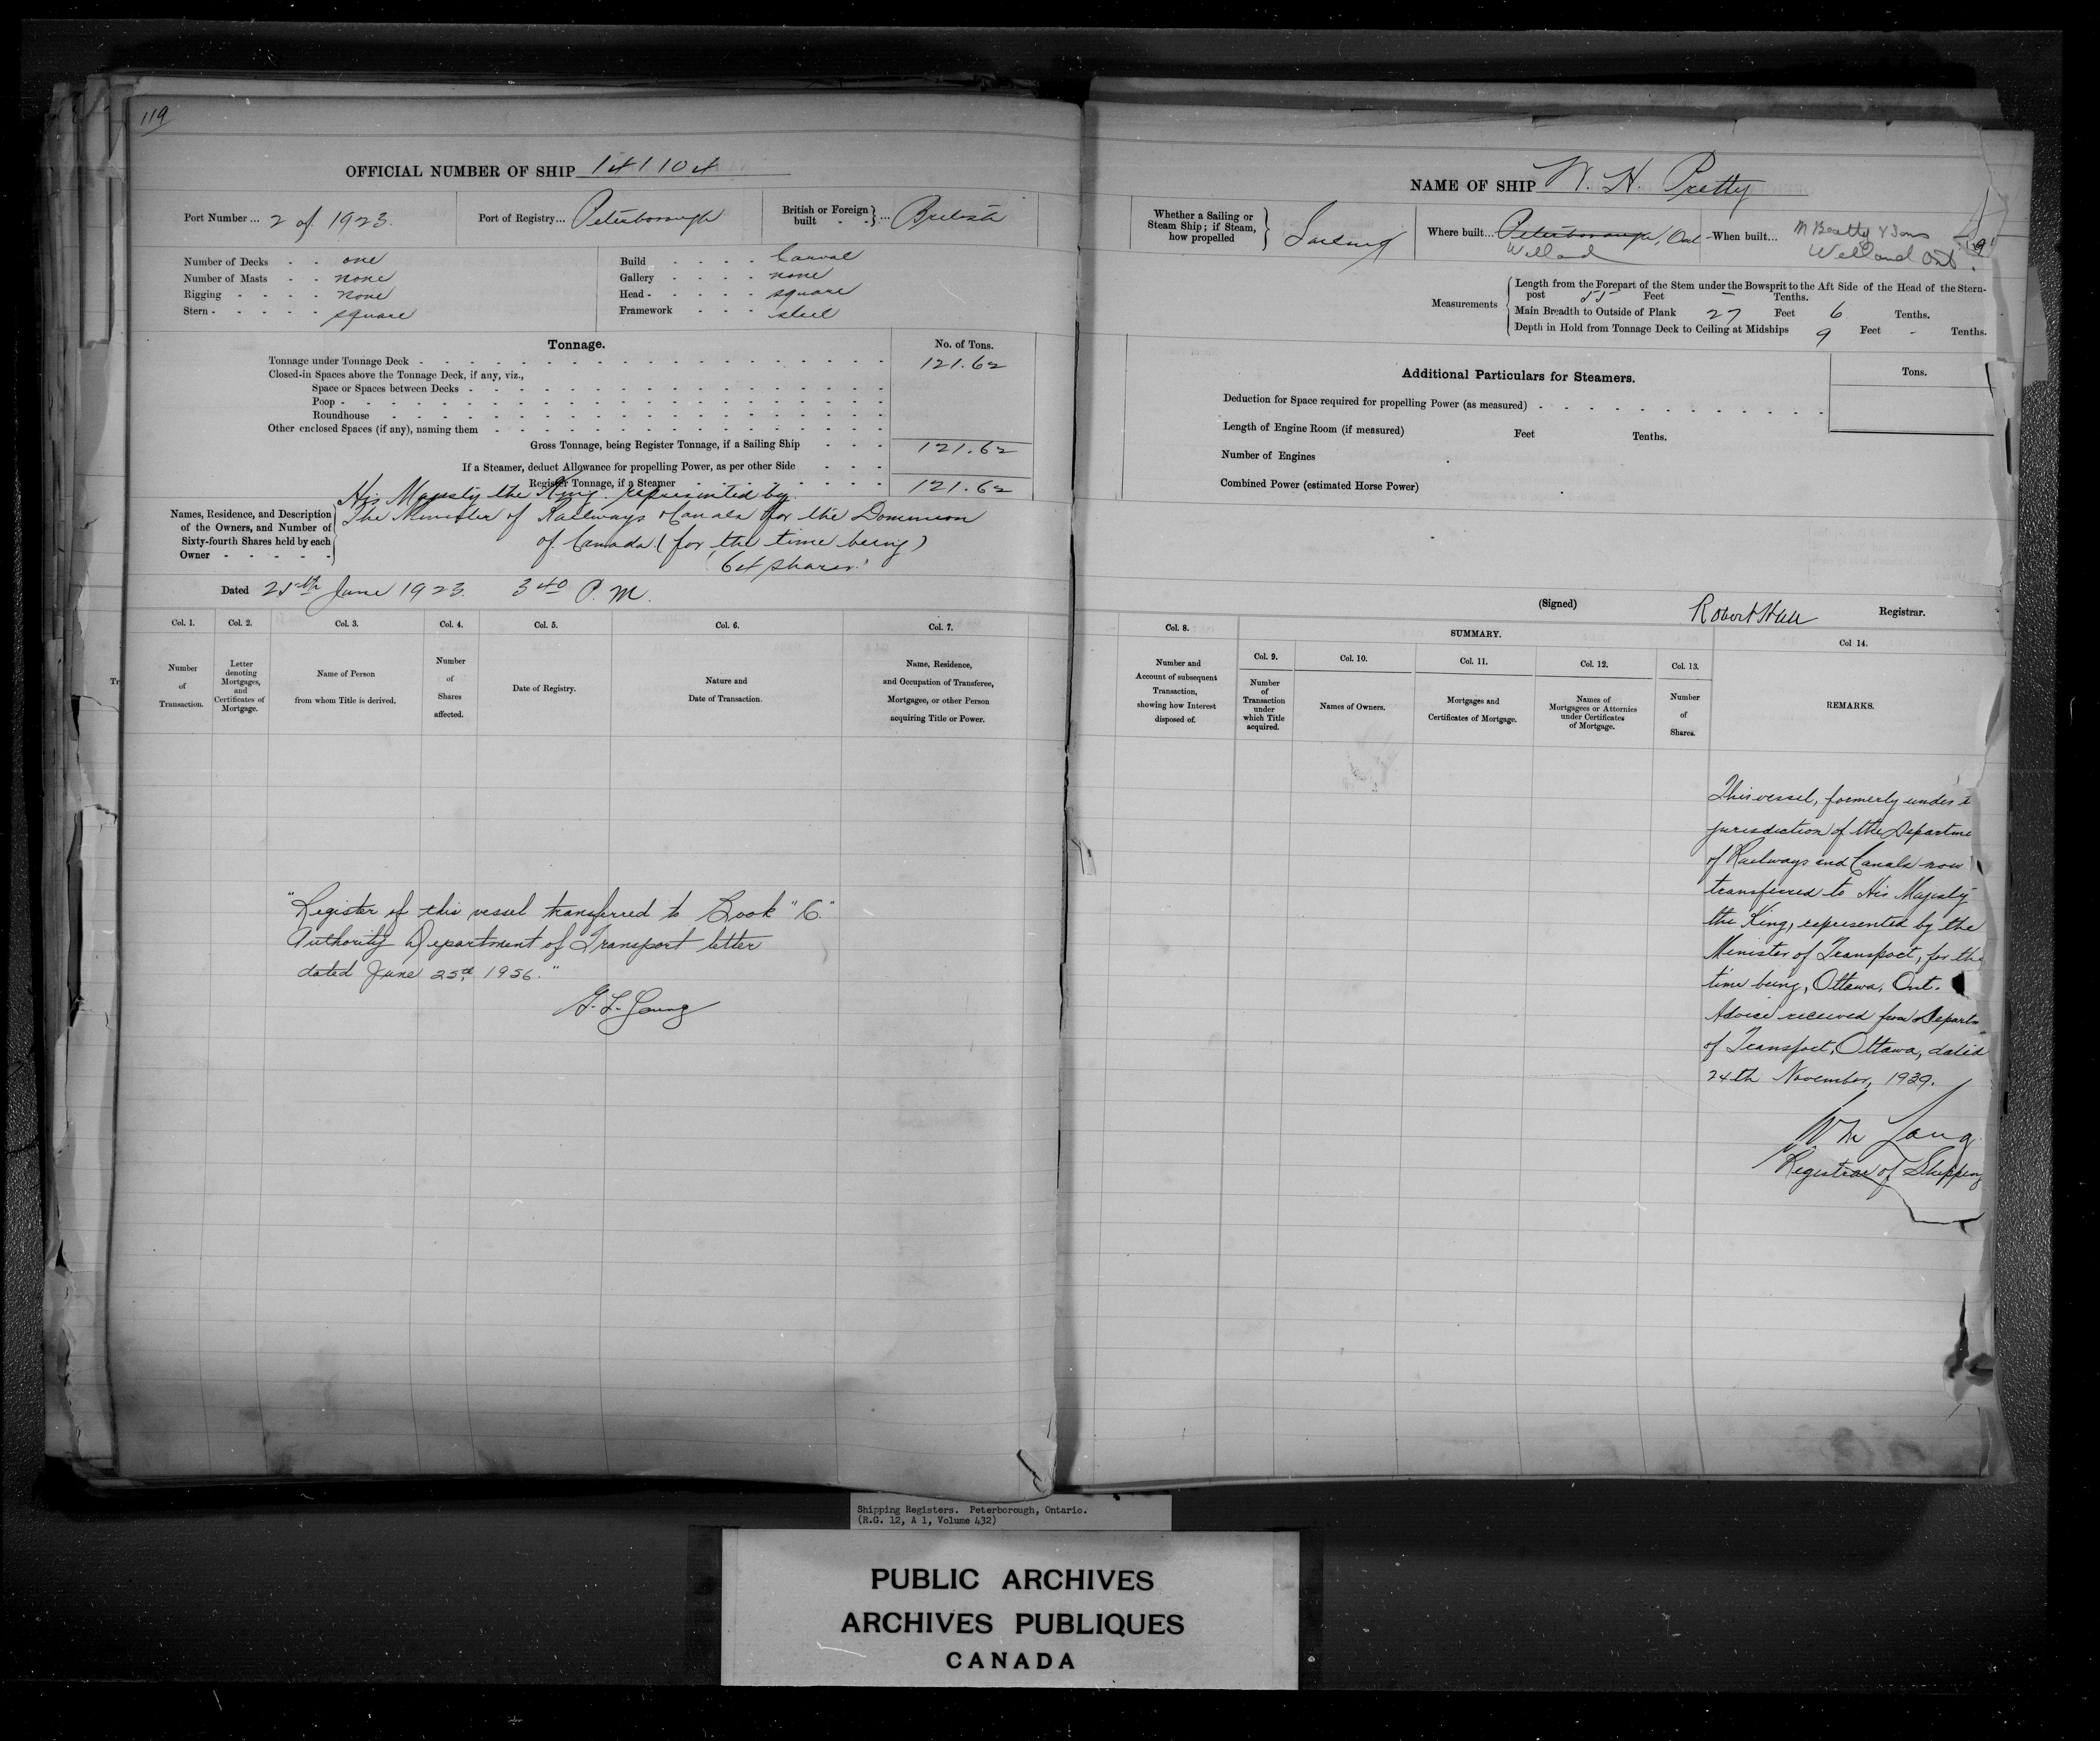 119
OFFICIAL NUMBER OF SHIP 141104
Port Number ... 2 of 1923.
Port of Registry... Peterborough
British or Foreign built ... British
Number of Decks one
Number of Masts none
Rigging none
Stern square
Build Carvel
Gallery none
Head square
Framework steel
Tonnage.
No. of Tons.
Tonnage under Tonnage Deck 121.62
Closed-in Spaces above the Tonnage Deck, if any, viz.,
Space or Spaces between Decks
Poop
Roundhouse
Other enclosed Spaces (if any), naming them
Gross Tonnage, being Register Tonnage, if a Sailing Ship 121.62
If a Steamer, deduct Allowance for propelling Power, as per other Side
Register Tonnage, if a Steamer 121.62
Names, Residence, and Description
of the Owners, and Number of
Sixty-fourth Shares held by each
Owner
His Majesty the King. represented by
The Minister of Railways & Canals for the Dominion
of Canada (for the time being)
64 shares.
Dated 25th June 1923. 3 40 P. M.
Col. 1.
Number
of
Transaction.
Col. 2.
Letter
denoting
Mortgages,
and
Certificates of
Mortgage.
Col. 3.
Name of Person
from whom Title is derived.
Col. 4.
Number
of
Shares
affected.
Col. 5.
Date of Registry.
Col. 6.
Nature and
Date of Transaction.
Col. 7.
Name, Residence,
and Occupation of Transferee,
Mortgagee, or other Person
acquiring Title or Power.
"Register of this vessel transferred to Book "C."
Authority Department of Transport letter
dated June 25th 1956."
G. L. Young
NAME OF SHIP W. H. Pretty
Whether a Sailing or
Steam Ship; if Steam,
how propelled
Sailing
Where built... Peterborough, Ont
Welland
When built...
M Beatty & Sons
Welland Ont.
Measurements
Length from the Forepart of the Stem under the Bowsprit to the Aft Side of the Head of the Stern-
post 55 Feet – Tenths.
Main Breadth to Outside of Plank 27 Feet 6 Tenths.
Depth in Hold from Tonnage Deck to Ceiling at Midships 9 Feet - Tenths.
Additional Particulars for Steamers.
Tons.
Deduction for Space required for propelling Power (as measured)
Length of Engine Room (if measured) Feet Tenths.
Number of Engines
Combined Power (estimated Horse Power)
(Signed) Robert Hall Registrar.
Col. 8.
Number and
Account of subsequent
Transaction,
showing how Interest
disposed of.
SUMMARY.
Col. 9.
Number
of
Transaction
under
which Title
acquired.
Col. 10.
Names of Owners.
Col. 11.
Mortgages and
Certificates of Mortgage.
Col. 12.
Names of
Mortgagees or Attornies
under Certificates
of Mortgage.
Col. 13.
Number
of
Shares.
Col 14.
REMARKS.
This vessel, formerly under
jurisdiction of the Departme
of Railways and Canals now
transferred to His Majesty
the King, represented by the
Minister of Transport, for the
time being, Ottawa, Ont.
Advice received from Departm
of Transport, Ottawa, dated
24th November, 1939.
Registrar of Shipping
Shipping Registers. Peterborough, Ontario.
(R.G. 12, A 1, Volume 432)
PUBLIC ARCHIVES
ARCHIVES PUBLIQUES
CANADA